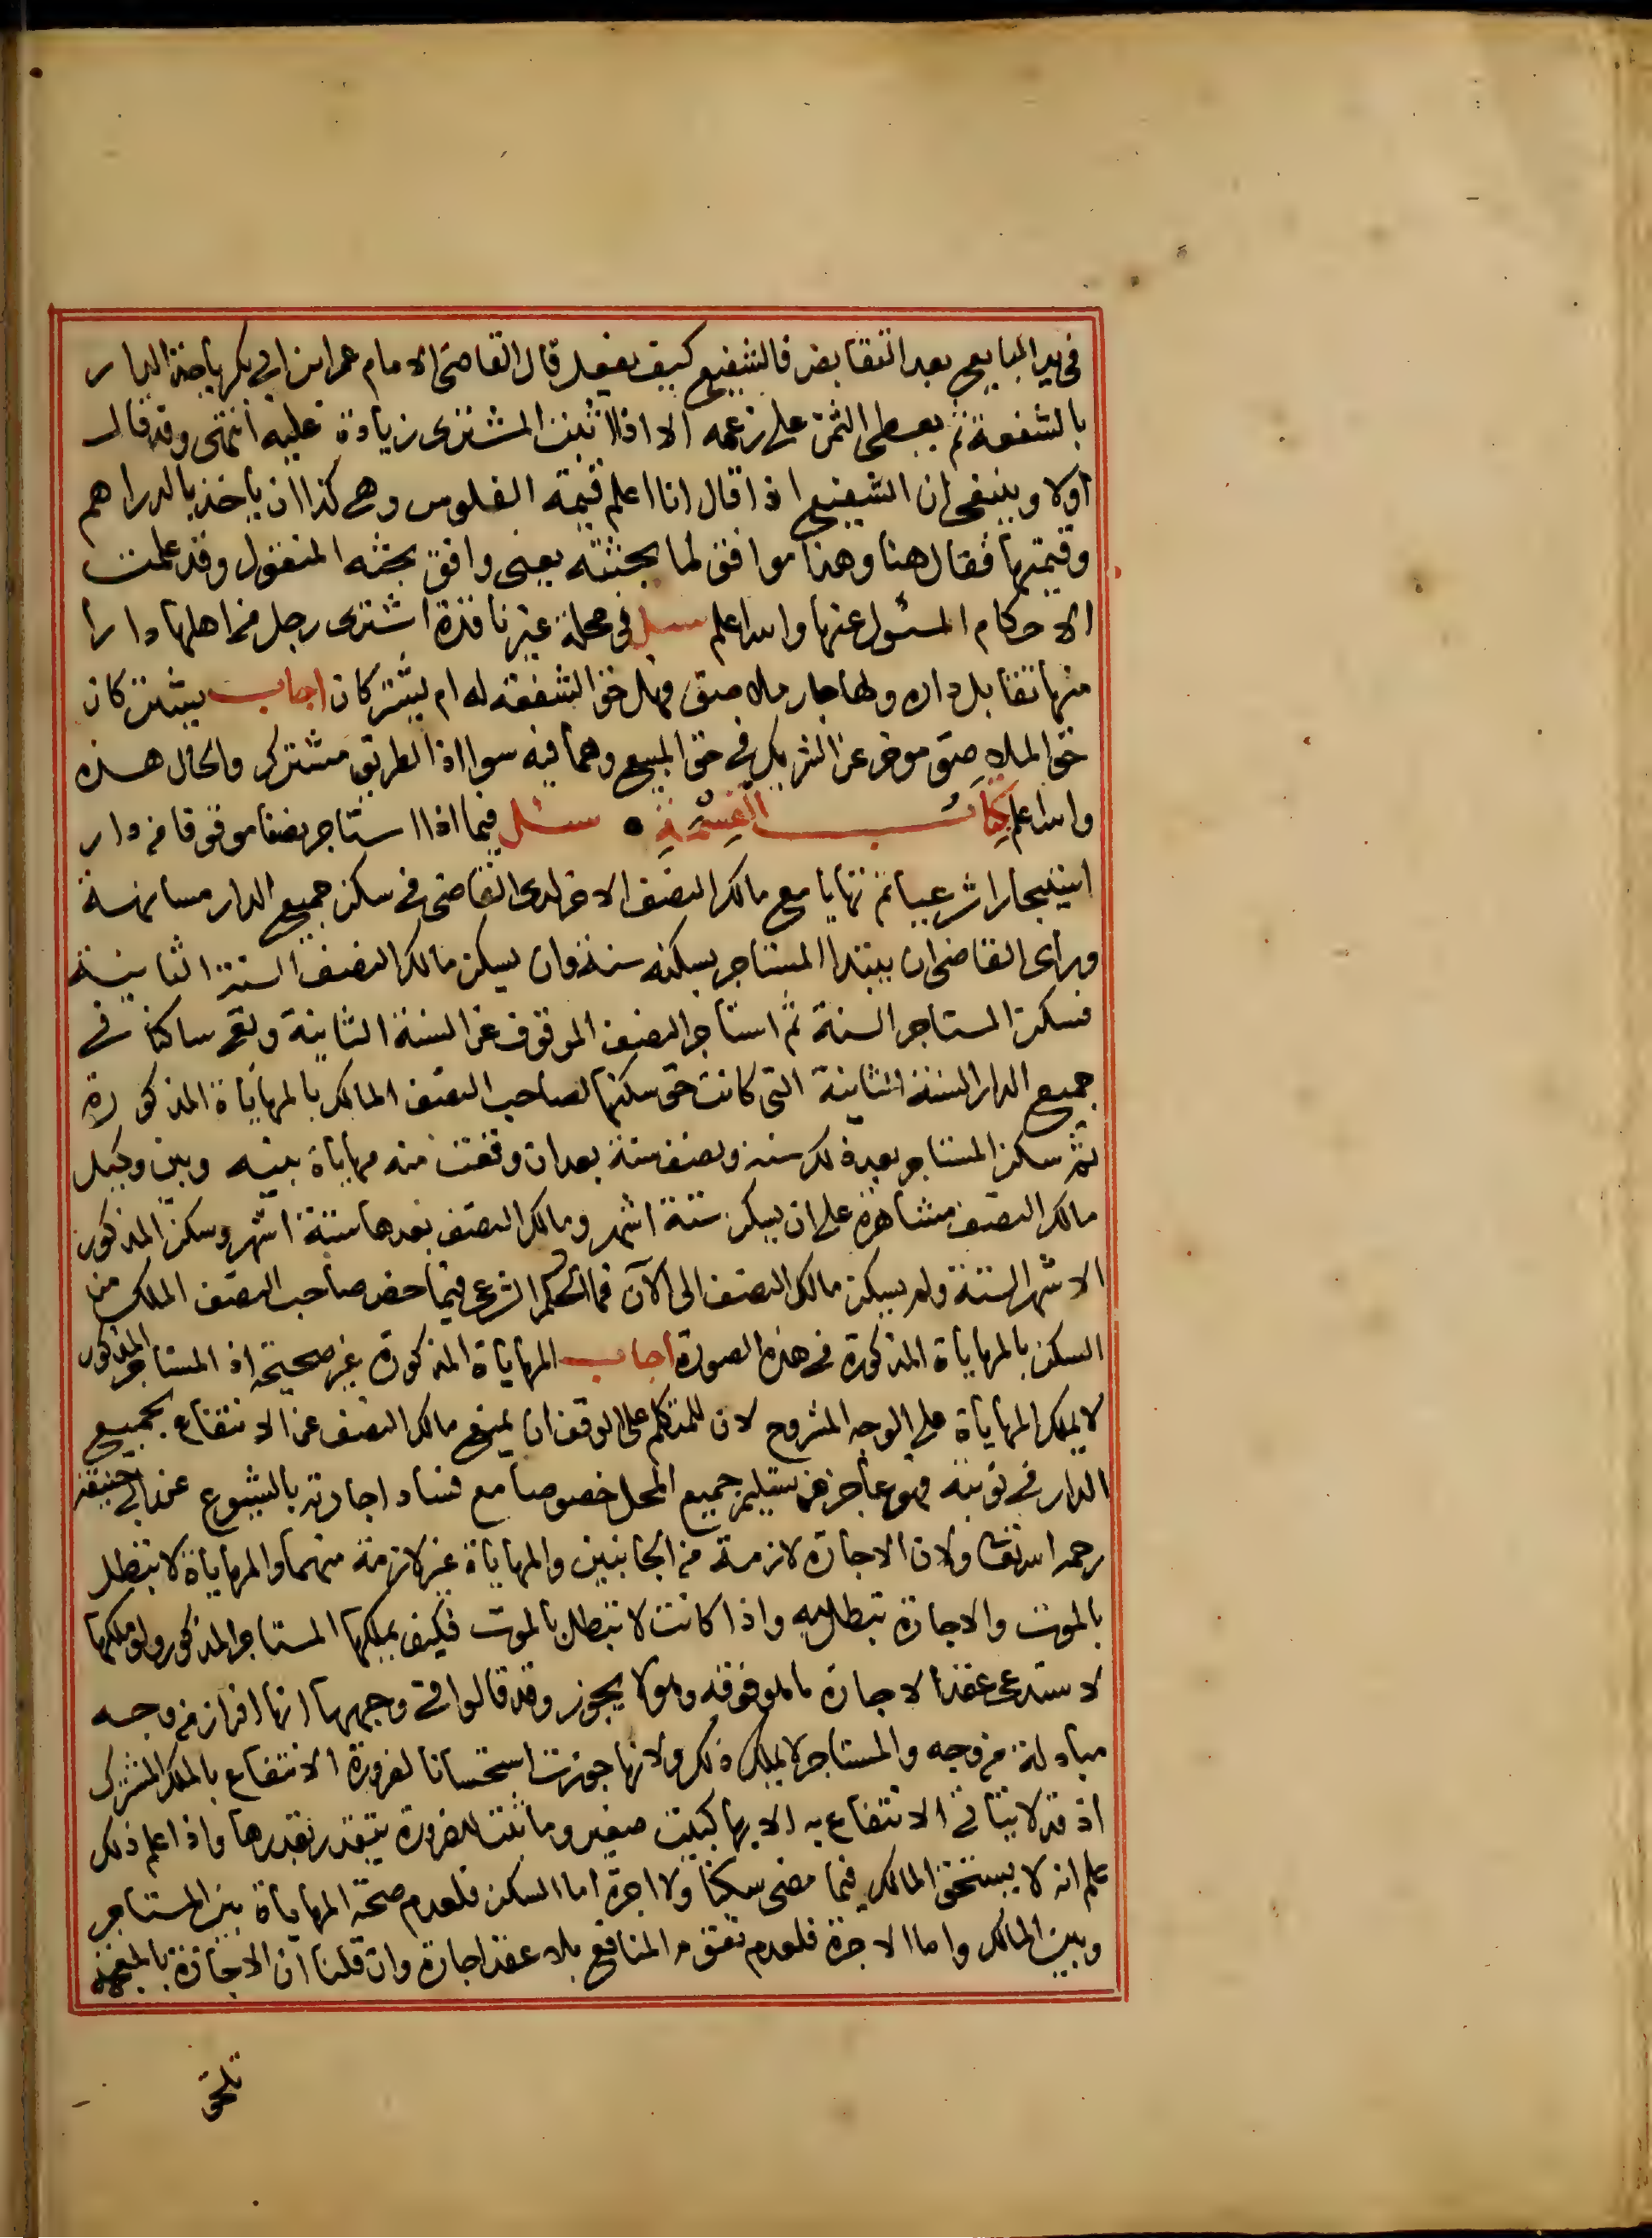 في يد البايع بعد التقابض فالشفيع كيف يفعل قال القاضي الامام عمر ابن ابي بكر ياخذ الدار
بالشفعة ثم يعطي الثمن على زعمه الا اذا اثبت المشتري زيادة عليه انتهى وقد قال
اولا وينبغي ان الشفيع اذا قال انا اعلم قيمة الفلوس وهي كذا ان ياخذ بالدراهم
وقيمتها فقال هنا وهذا موافق لما بحثته يعني وافق بحثه المنقول وقد علمت
الاحكام المسئول عنها والله اعلم سئل في محلة غير نافذة اشترى رجل من اهلها دارا
منها تقابل داره ولها جار ملاصق فهل حق الشفعة له ام يشتركان اجاب يشتركان
حق الملاصق موخر عن الشريك في حق المبيع وهما فيه سوا اذ الطريق مشترك والحال هذه
والله اعلم كتاب القسمة سئل فيما اذا استاجر نصفا موقوفا من دار
استيجارا شرعيا ثم تهايا مع مالك النصف الاخر لدى القاضي في سكن جميع الدار مسانهة
وراى القاضي ان يبتدا المستاجر بسكنه سنة وان يسكن مالك النصف السنة الثانية
فسكن المستاجر السنة ثم استاجر النصف الموقوف عن السنة الثانية وبقي ساكنا في
جميع الدار السنة الثانية التي كانت حق سكنها لصاحب النصف المالك بالمهاياة المذكورة
ثم سكن المستاجر بعد ذلك سنه ونصف سنة بعد ان وقعت منه مهاياة بينه وبين وكيل
مالك النصف مشاهرة على ان يسكن ستة اشهر ومالك النصف بعدها ستة اشهر وسكن المذكور
الاشهر الستة ولم يسكن مالك النصف الى الآن فما الحكم الشرعي فيما خص صاحب النصف الملك من
السكن بالمهاياة المذكورة في هذه الصورة اجاب المهاياة المذكورة غير صحيحة اذ المستاجر المذكور
لا يملك المهاياة على الوجه المشروح لان للمتكلم على الوقف ان يمنع مالك النصف عن الانتفاع بجميع
الدار في نوبته فهو عاجز عن تسليم جميع المحل خصوصا مع فساد اجارته بالشيوع عند ابي حنيفة
رحمه الله تعالى ولان الاجارة لازمة من الجانبين والمهاياة غير لازمة منهما والمهاياة لا تبطل
بالموت والاجارة تبطل به واذا كانت لا تبطل بالموت فكيف يملكها المستاجر المذكور ولو ملكها
لاستدعى عقد الاجارة بالموقوفة وهو لا يجوز وقد قالوا في وجهها انها افراز من وجه
مبادلة من وجه والمستاجر لا يملك ذلك ولانها جوزت استحسانا لضرورة الانتفاع بالملك المشترك
اذ قد لا يتاتى الانتفاع به الا بها كبيت صغير وما ثبت للضرورة يتقدر بقدرها واذا علم ذلك
علم انه لا يستحق المالك فيما مضى سكنا ولا اجرة اما السكن فلعدم صحة المهاياة بين المستاجر
وبين المالك واما الاجرة فلعدم تقوم المنافع بلا عقد اجارة وان قلنا ان الاجازة بالمنفعة
تلحق